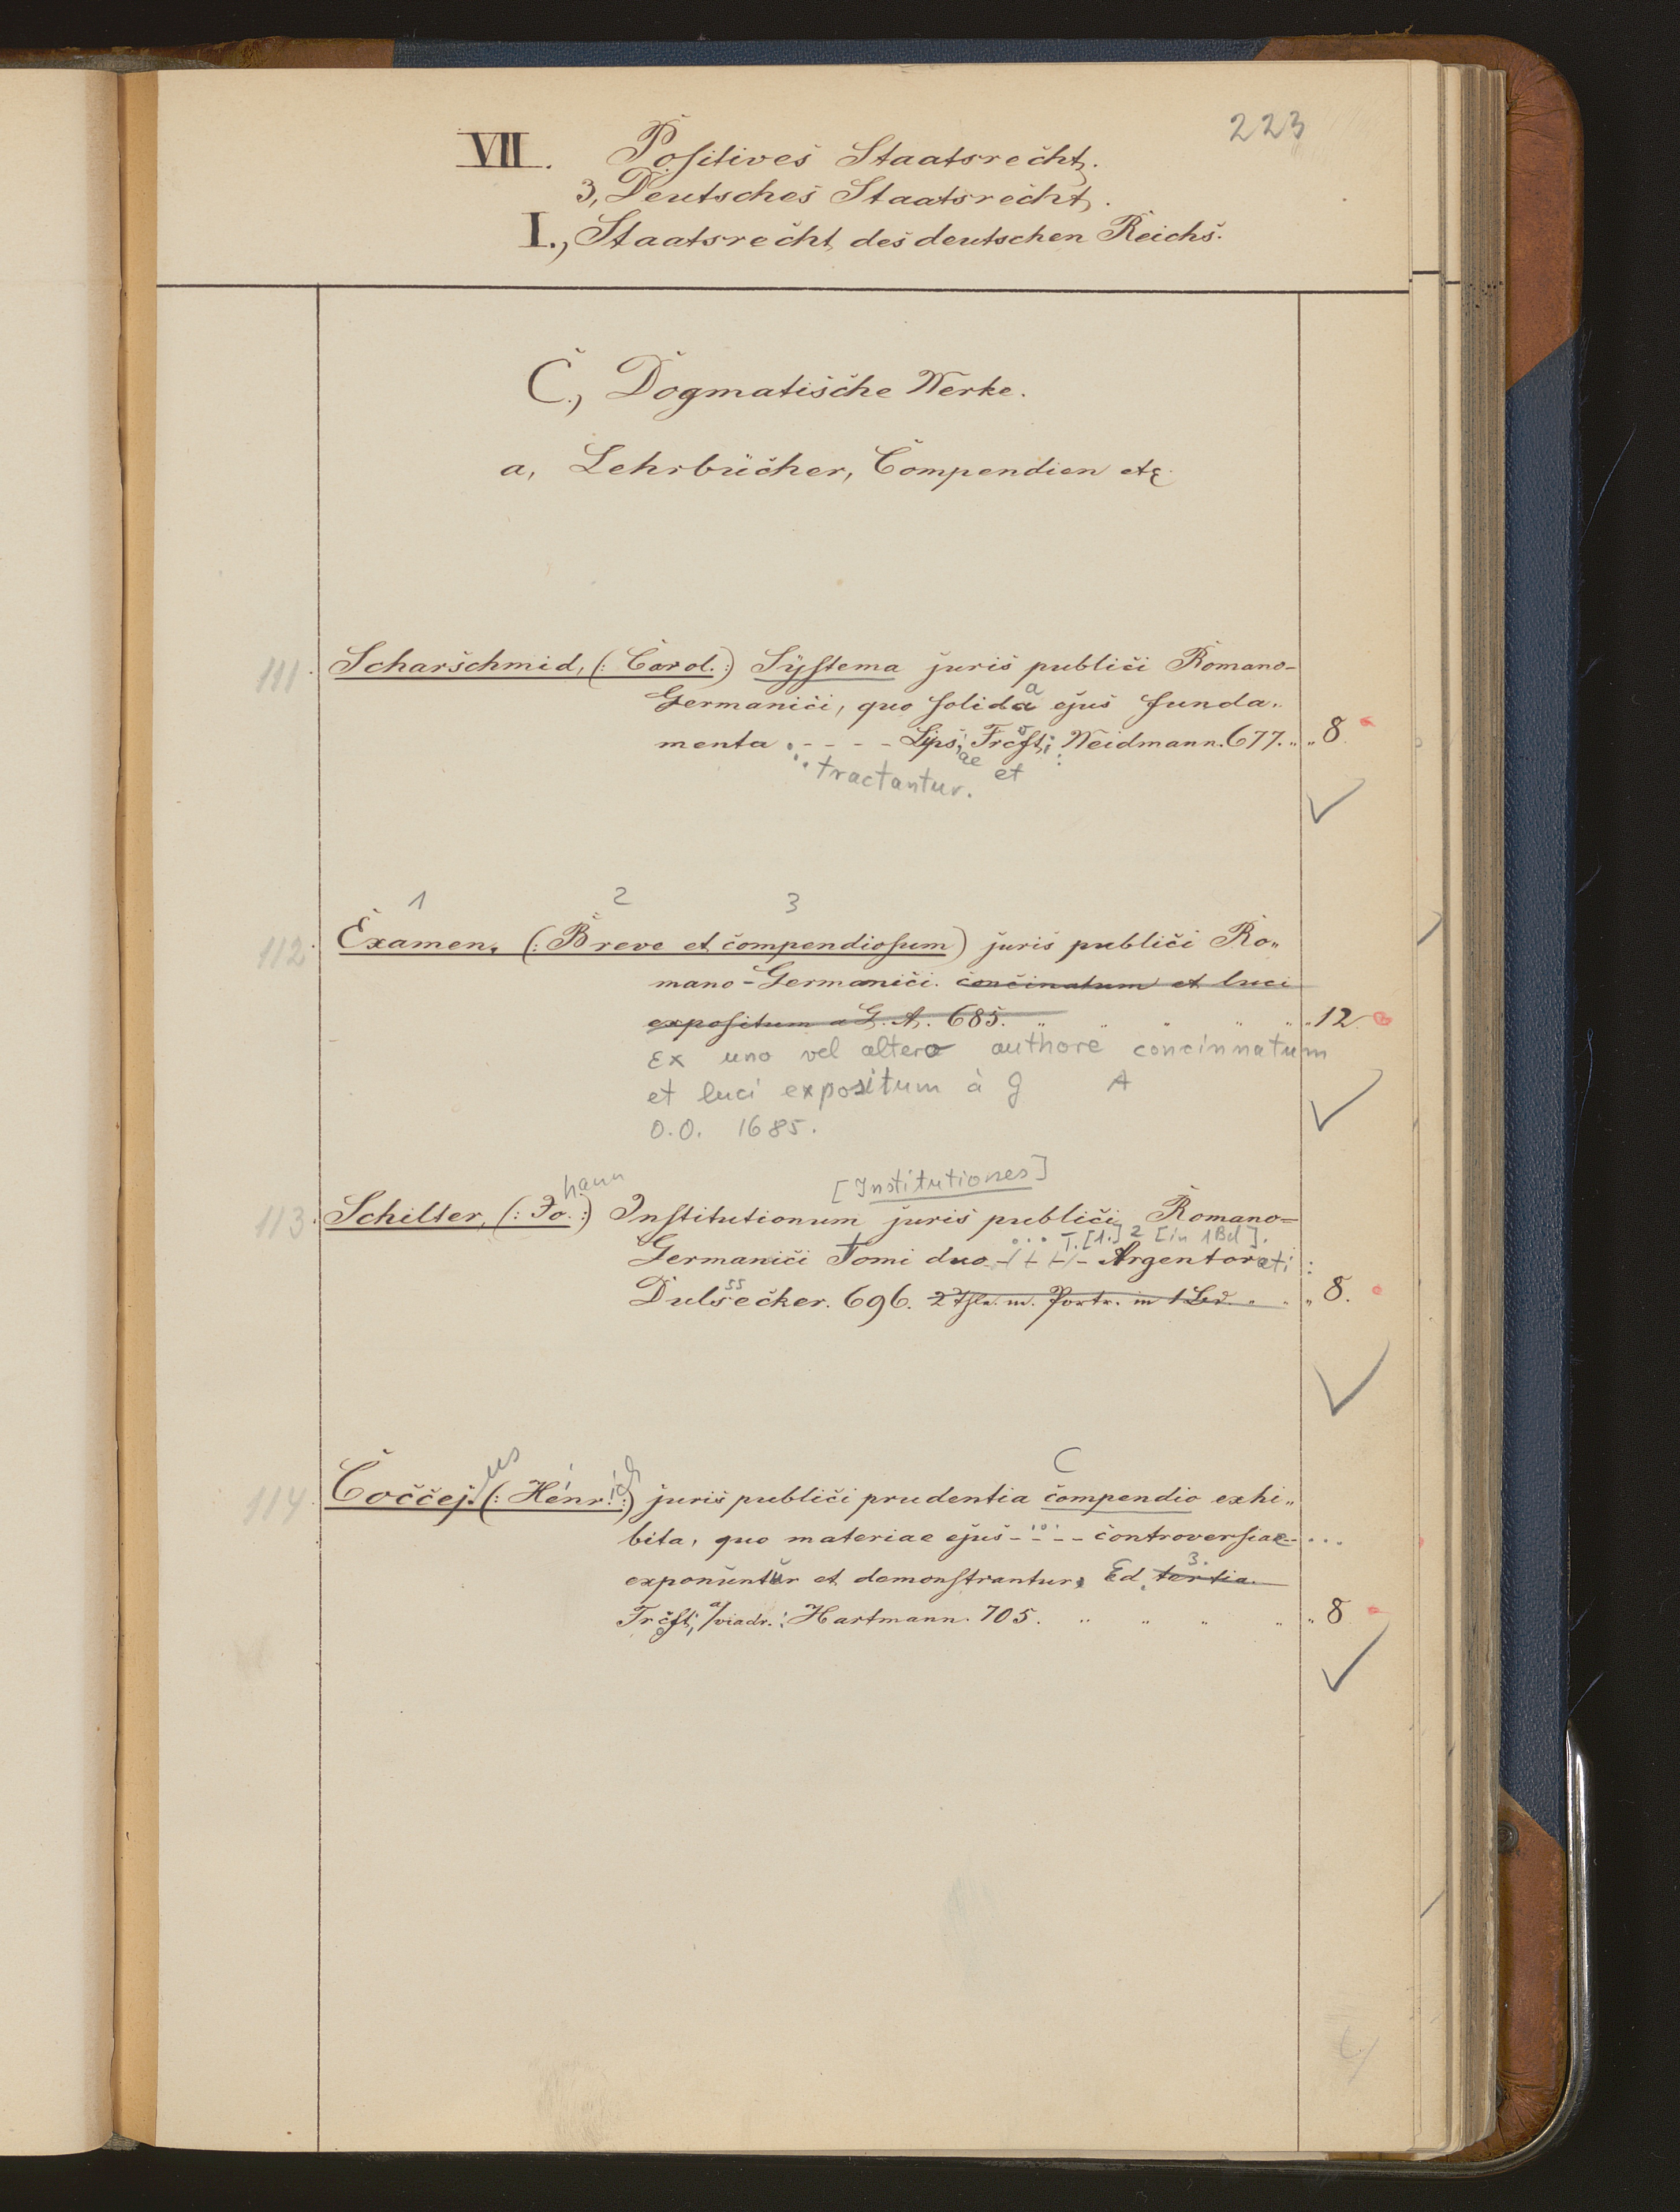 223
VII. Positives Staatsrecht.
3, Deutsches Staatsrecht.
I., Staatsrecht des deutschen Reichs.
C., Dogmatische Werke.
a, Lehrbücher, Compendien etc.
111. Scharschmid, (: Carol.:) Systema juris publici Romano-
a
Germanici, quo solida ejus funda-
menta . - - - - Lips, Frcft; Weidmann. 677. „ „ 8
ae et
tractantur.
1 2 3
112. Examen, (: Breve et compendiosum) juris publici Ro„
mano-Germanici. concinatum et luci
expositum a G. A. 685. „ „ „ „ „ „ 12
Ex uno vel altero authore concinnatum
et luci expositum à G A
O.O. 1685.
hann [Institutiones]
113. Schilter, (: Jo.:) Institutionum juris publici Romano=
... T. [1.] 2 [in 1 Bd].
Germanici Tomi duo - - - - Argentorati:
ss
Dulsecker. 696. 2 Thle. m. Portr. in 1 Bd. „ „ „ 8.
us i ich C
114. Coccej. (: Henr.:) juris publici prudentia compendio exhi„
bita, quo materiae ejus - - - - controversiae - ...
3.
exponuntur et demonstrantur, Ed. tertia.
Frcft, a/viadr.: Hartmann. 705. „ „ „ „ „ 8